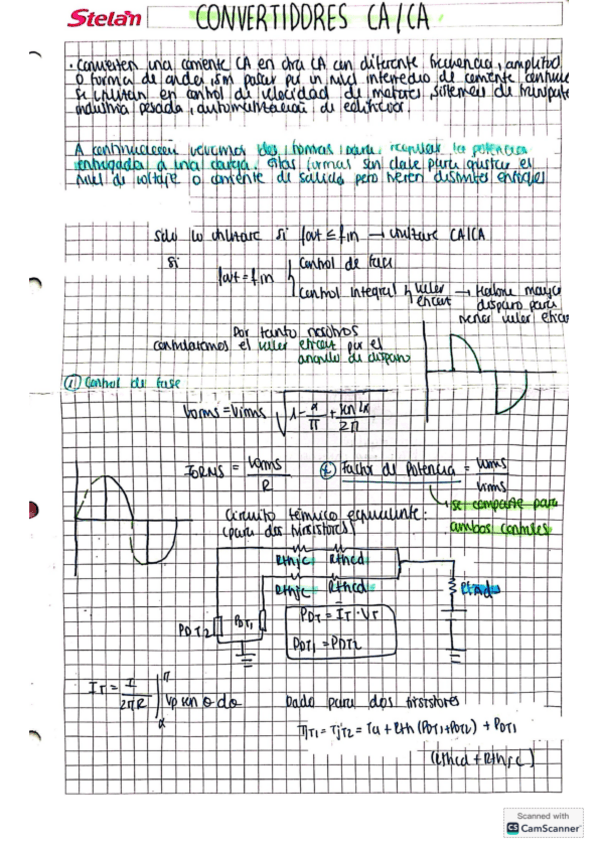 Stelan
CONVERTIDORES CA/CA
· convierten una corriente CA en otra CA con diferente frecuencia, amplitud
o forma de onda, sin pasar por un nivel intermedio de corriente continua
se utilizan en control de velocidad de motores, sistemas de transporte
industria pesada, automatización de edificios.
A continuación veremos dos formas para regular la potencia
entregada a una carga. Estas formas son clave para ajustar el
nivel de voltaje o corriente de salida pero tienen distintos enfoques
Solo lo utilizare si fout ≤ fin → utilizare CA/CA
si
fout = fin
Control de fase
Control Integral
valor
eficaz
→
mayor
disparo para
valor eficaz
Por tanto nosotros
controlaremos el valor eficaz por el
angulo de disparo
① Control de fase
Vorms = Virms √ 1 - α/π + sen 2α/2π
IORMS = Vorms/R
② Factor de Potencia = Vorms/Virms
→ se comparte para
ambos controles
Circuito térmico equivalente:
(para dos tiristores)
Rthjc Rthcd
Rthjc Rthcd
Rthda
PDT2
PDT1
PDT = IT · VT
PDT1 = PDT2
IT = 1/2πR ∫ π α Vp sen θ dθ
Dado para dos tiristores
TjT1 = TjT2 = Ta + Rth (PDT1 + PDT2) + PDT1
(Rthcd + Rthjc)
Scanned with
CS CamScanner